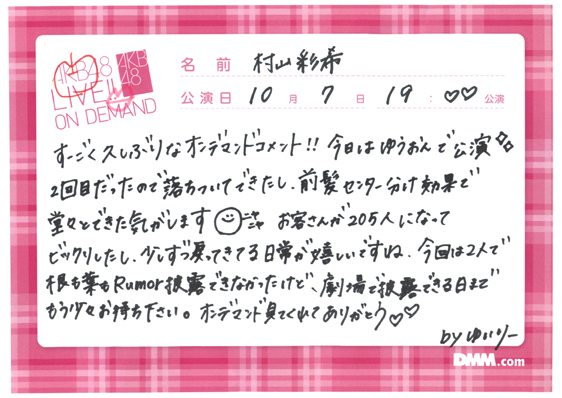 AKB48
LIVE!!
ON DEMAND
AKB
48
名前 村山彩希
公演日 10月7日 19:♡♡公演
すーごく久しぶりなオンデマンドコメント!! 今日はゆうおんで公演
2回目だったので落ちついてできたし、前髪センター分け効果で
堂々とできた気がします ニャ お客さんが205人になって
ビックリしたし、少しずつ戻ってきてる日常が嬉しいですね。今回は2人で
根も葉もRumor披露できなかったけど、劇場で披露できる日まで
もう少々お待ち下さい。オンデマンド見てくれてありがとう♡♡
by ゆいりー
DMM.com